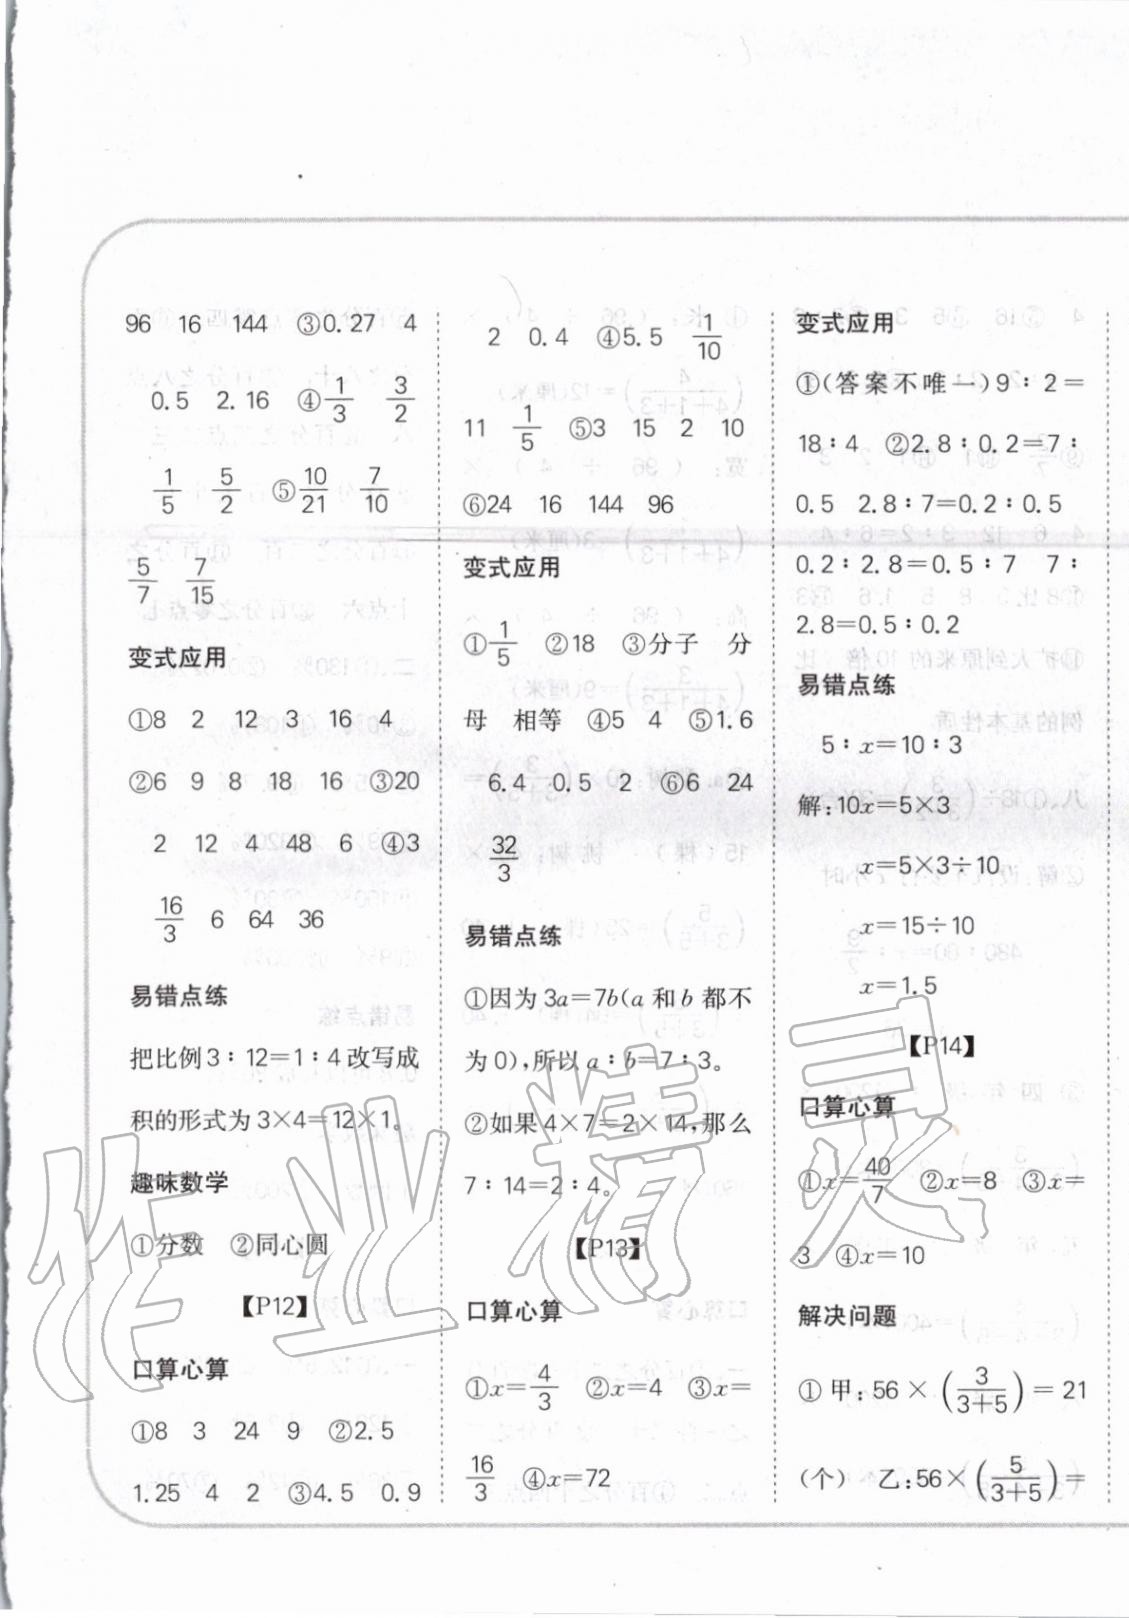 96 16 144 ③0.27 4
0.5 2.16 ④1/3 3/2
1/5 5/2 ⑤10/21 7/10
5/7 7/15
变式应用
①8 2 12 3 16 4
②6 9 8 18 16 ③20
2 12 4 48 6 ④3
16/3 6 64 36
易错点练
把比例3∶12=1∶4改写成
积的形式为3×4=12×1。
趣味数学
①分数 ②同心圆
【P12】
口算心算
①8 3 24 9 ②2.5
1.25 4 2 ③4.5 0.9
2 0.4 ④5.5 1/10
11 1/5 ⑤3 15 2 10
⑥24 16 144 96
变式应用
①1/5 ②18 ③分子 分
母 相等 ④5 4 ⑤1.6
6.4 0.5 2 ⑥6 24
32/3
易错点练
①因为3a=7b(a和b都不
为0),所以a∶b=7∶3。
②如果4×7=2×14,那么
7∶14=2∶4。
【P13】
口算心算
①x=4/3 ②x=4 ③x=
16/3 ④x=72
变式应用
①(答案不唯一)9∶2=
18∶4 ②2.8∶0.2=7∶
0.5 2.8∶7=0.2∶0.5
0.2∶2.8=0.5∶7 7∶
2.8=0.5∶0.2
易错点练
5∶x=10∶3
解:10x=5×3
x=5×3÷10
x=15÷10
x=1.5
【P14】
口算心算
①x=40/7 ②x=8 ③x=
3 ④x=10
解决问题
①甲:56×(3/(3+5))=21
(个) 乙:56×(5/(3+5))=
作业精灵